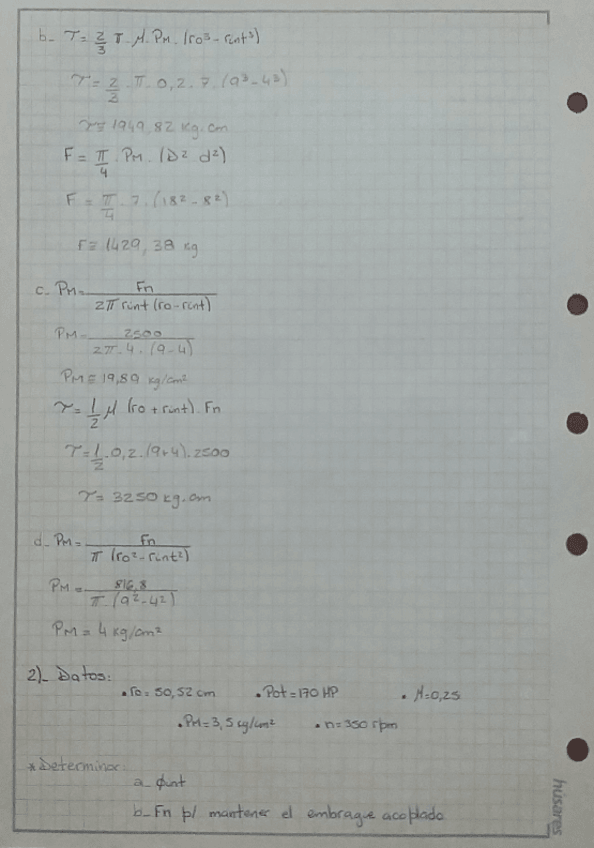 b_ τ = 2/3 π . μ . PM . (ro³ - rint³)
τ = 2/3 . π . 0,2 . 7 . (9³ - 4³)
τ ≅ 1949,82 kg.cm
F = π/4 . PM . (D² d²)
F = π/4 . 7 . (18² - 8²)
F ≅ 1429,38 kg
c_ PM = Fn / 2π rint (ro - rint)
PM = 2500 / 2π . 4 . (9 - 4)
PM ≅ 19,89 kg/cm²
τ = 1/2 μ (ro + rint) . Fn
τ = 1/2 . 0,2 . (9+4) . 2500
τ = 3250 kg.cm
d_ PM = Fn / π (ro² - rint²)
PM = 816,8 / π . (9² - 4²)
PM = 4 kg/cm²
2)_ Datos:
• ro = 50,52 cm • Pot = 170 HP • μ = 0,25
• PM = 3,5 kg/cm² • n = 350 rpm
* Determinar:
a_ ϕint
b_ Fn p/ mantener el embrague acoplado
húsares